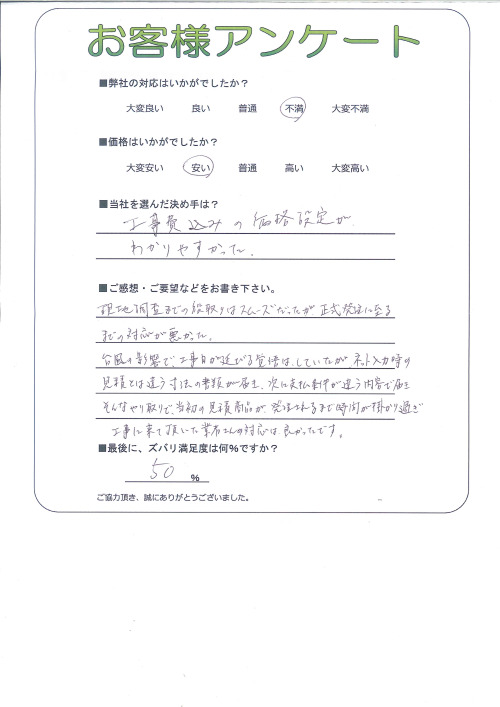 お客様アンケート
■弊社の対応はいかがでしたか？
大変良い 良い 普通 不満 大変不満
■価格はいかがでしたか？
大変安い 安い 普通 高い 大変高い
■当社を選んだ決め手は？
工事費込みの価格設定が
わかりやすかった。
■ご感想・ご要望などをお書き下さい。
現地調査までの段取りはスムーズだったが正式発注に至る
までの対応が悪かった。
台風の影響で、工事日が延びる覚悟は、していたが ネット入力時の
見積とは違う寸法の書類が届き、次に支払条件が違う内容で届き
そんなやり取りで、当初の見積商品が発注されるまで時間が掛かり過ぎ
工事に来て頂いた業者さんの対応は良かったです。
■最後に、ズバリ満足度は何%ですか？
50 %
ご協力頂き、誠にありがとうございました。